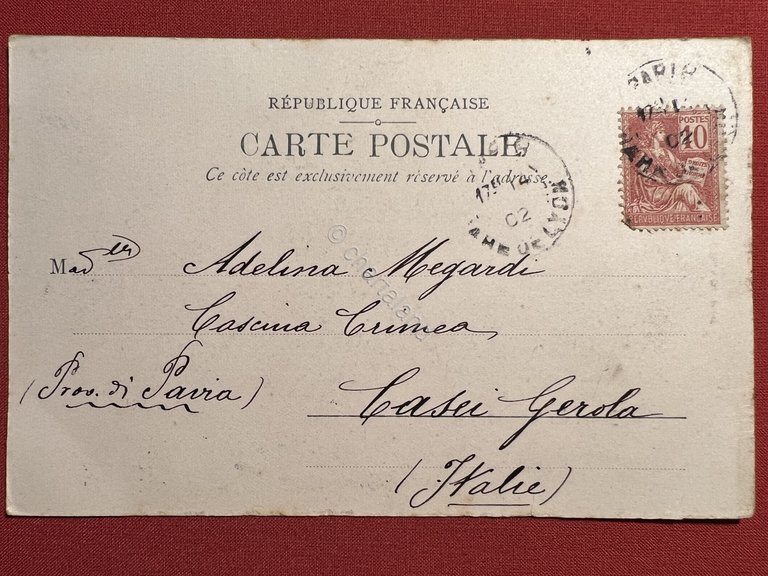 RÉPUBLIQUE FRANÇAISE
CARTE POSTALE
Ce côte est exclusivement réservé à l'adresse
POSTES
10
RÉPUBLIQUE FRANÇAISE
PARIS
02
02
Mad<sup>lle</sup> Adelina Megardi
Cascina Crimea
(Prov. di Pavia)
Casei Gerola
(Italie)
© cartalana